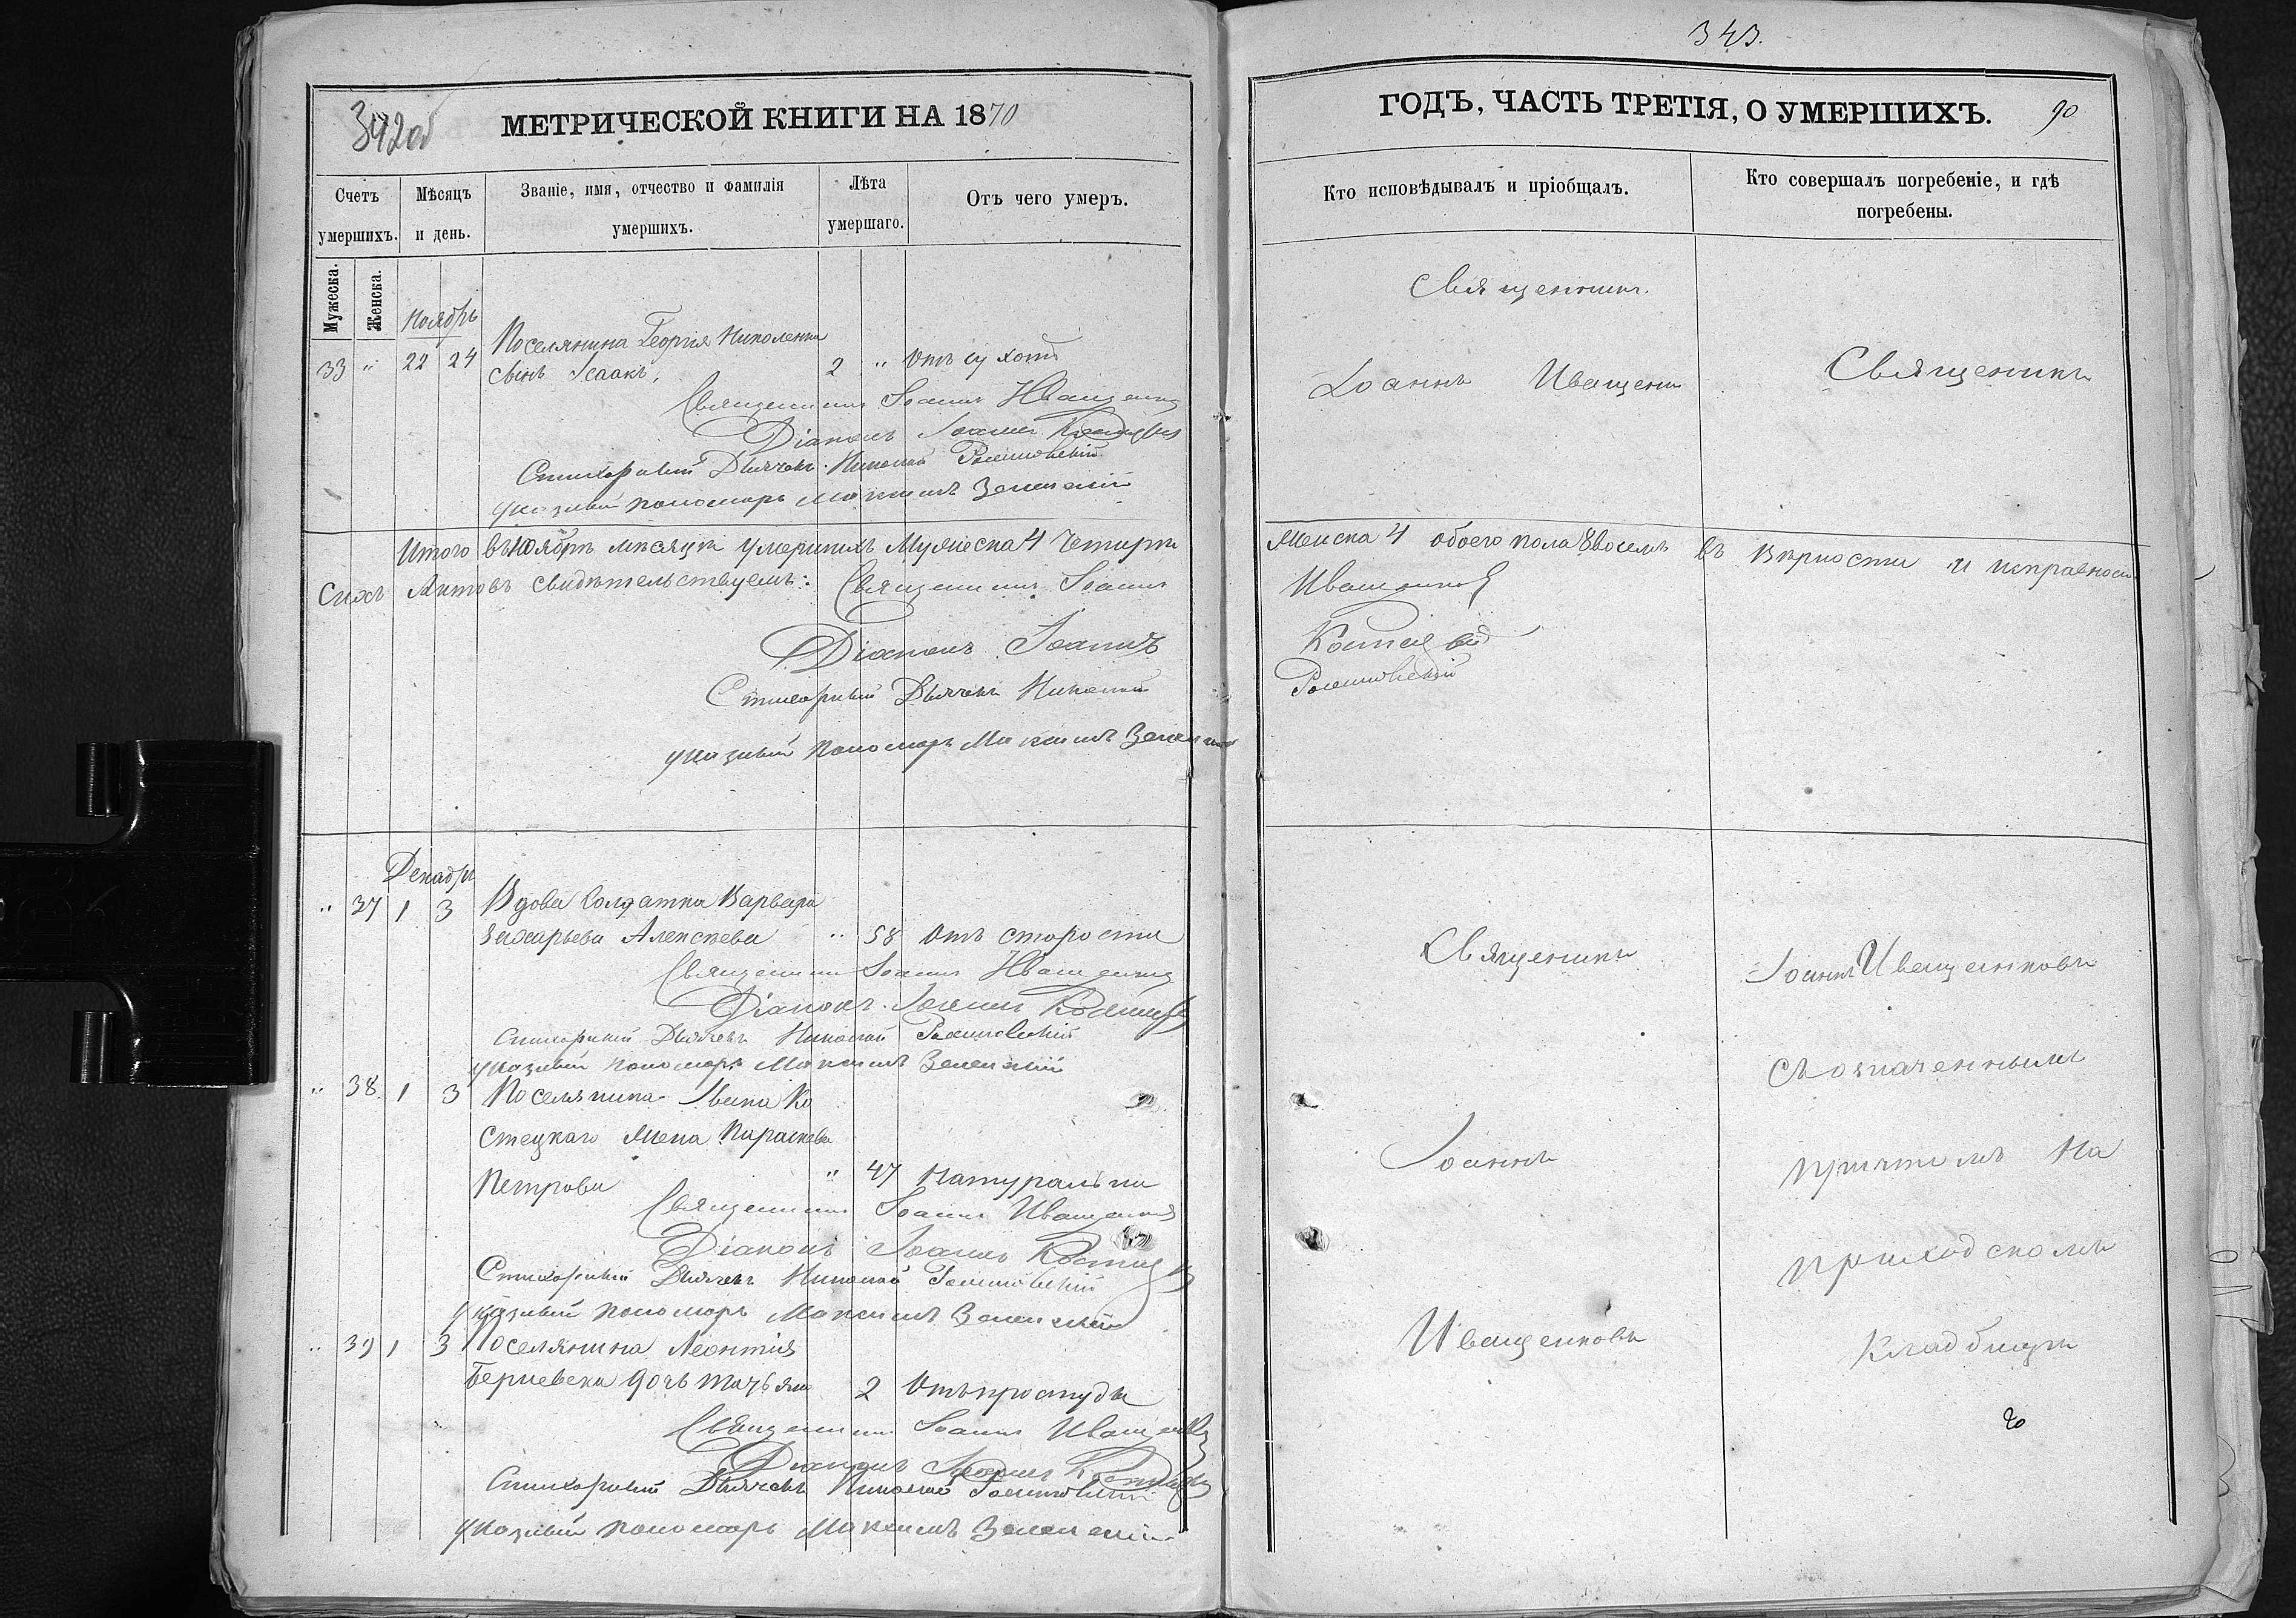 342об
МЕТРИЧЕСКОЙ КНИГИ НА 1870
Счетъ умершихъ.
Мѣсяцъ и день.
Званіе, имя, отчество и фамилія умершихъ.
Лѣта умершаго.
Отъ чего умеръ.
Мужеска.
Женска.
Ноябрь
33 " 22 24 Поселянина Георгія Николенка
сынъ Ісаакъ, 2 " Отъ сухотъ
Священникъ Іоаннъ Иващенко
Діаконъ Іоаннъ
Стихарный Дьячекъ Николай
указный пономарь Максимъ Зеленскій
Итого въ Ноябрѣ мѣсяцѣ умершихъ Мужеска 4 Четыри
Сихъ Актовъ свидѣтельствуемъ: Священникъ Іоаннъ
Діаконъ Іоаннъ
Стихарный Дьячекъ Николай
указный пономарь Максимъ Зеленскій
Декабрь
" 37 1 3 Вдова Солдатка Варвара
Захарьева Алексѣева " 58 Отъ старости
Священникъ Іоаннъ Иващенко
Діаконъ Іоаннъ
Стихарный Дьячекъ Николай
указный пономарь Максимъ Зеленскій
" 38 1 3 Поселянина Ивана Ко
стецкаго Жена Параскева
Петрова " 47 Натурально
Священникъ Іоаннъ Иващенко
Діаконъ Іоаннъ
Стихарный Дьячекъ Николай
Указный пономарь Максимъ Зеленскій
" 39 1 3 Поселянина Леонтія
дочь Татьяна 2 Отъ простуды
Священникъ Іоаннъ Иващенко
Діаконъ Іоаннъ
Стихарный Дьячекъ Николай
указный пономарь Максимъ Зеленскій
343.
ГОДЪ, ЧАСТЬ ТРЕТІЯ, О УМЕРШИХЪ. 90
Кто исповѣдывалъ и пріобщалъ.
Кто совершалъ погребеніе, и гдѣ погребены.
Священникъ
Іоаннъ Иващенк
Священникъ
Женска 4 обоего пола 8 восемь въ вѣрности и исправности
Иващенков
Священникъ
Іоаннъ Иващенковъ
съ означеннымъ
Іоаннъ
причтомъ на
приходскомъ
Иващенковъ
Кладбищѣ